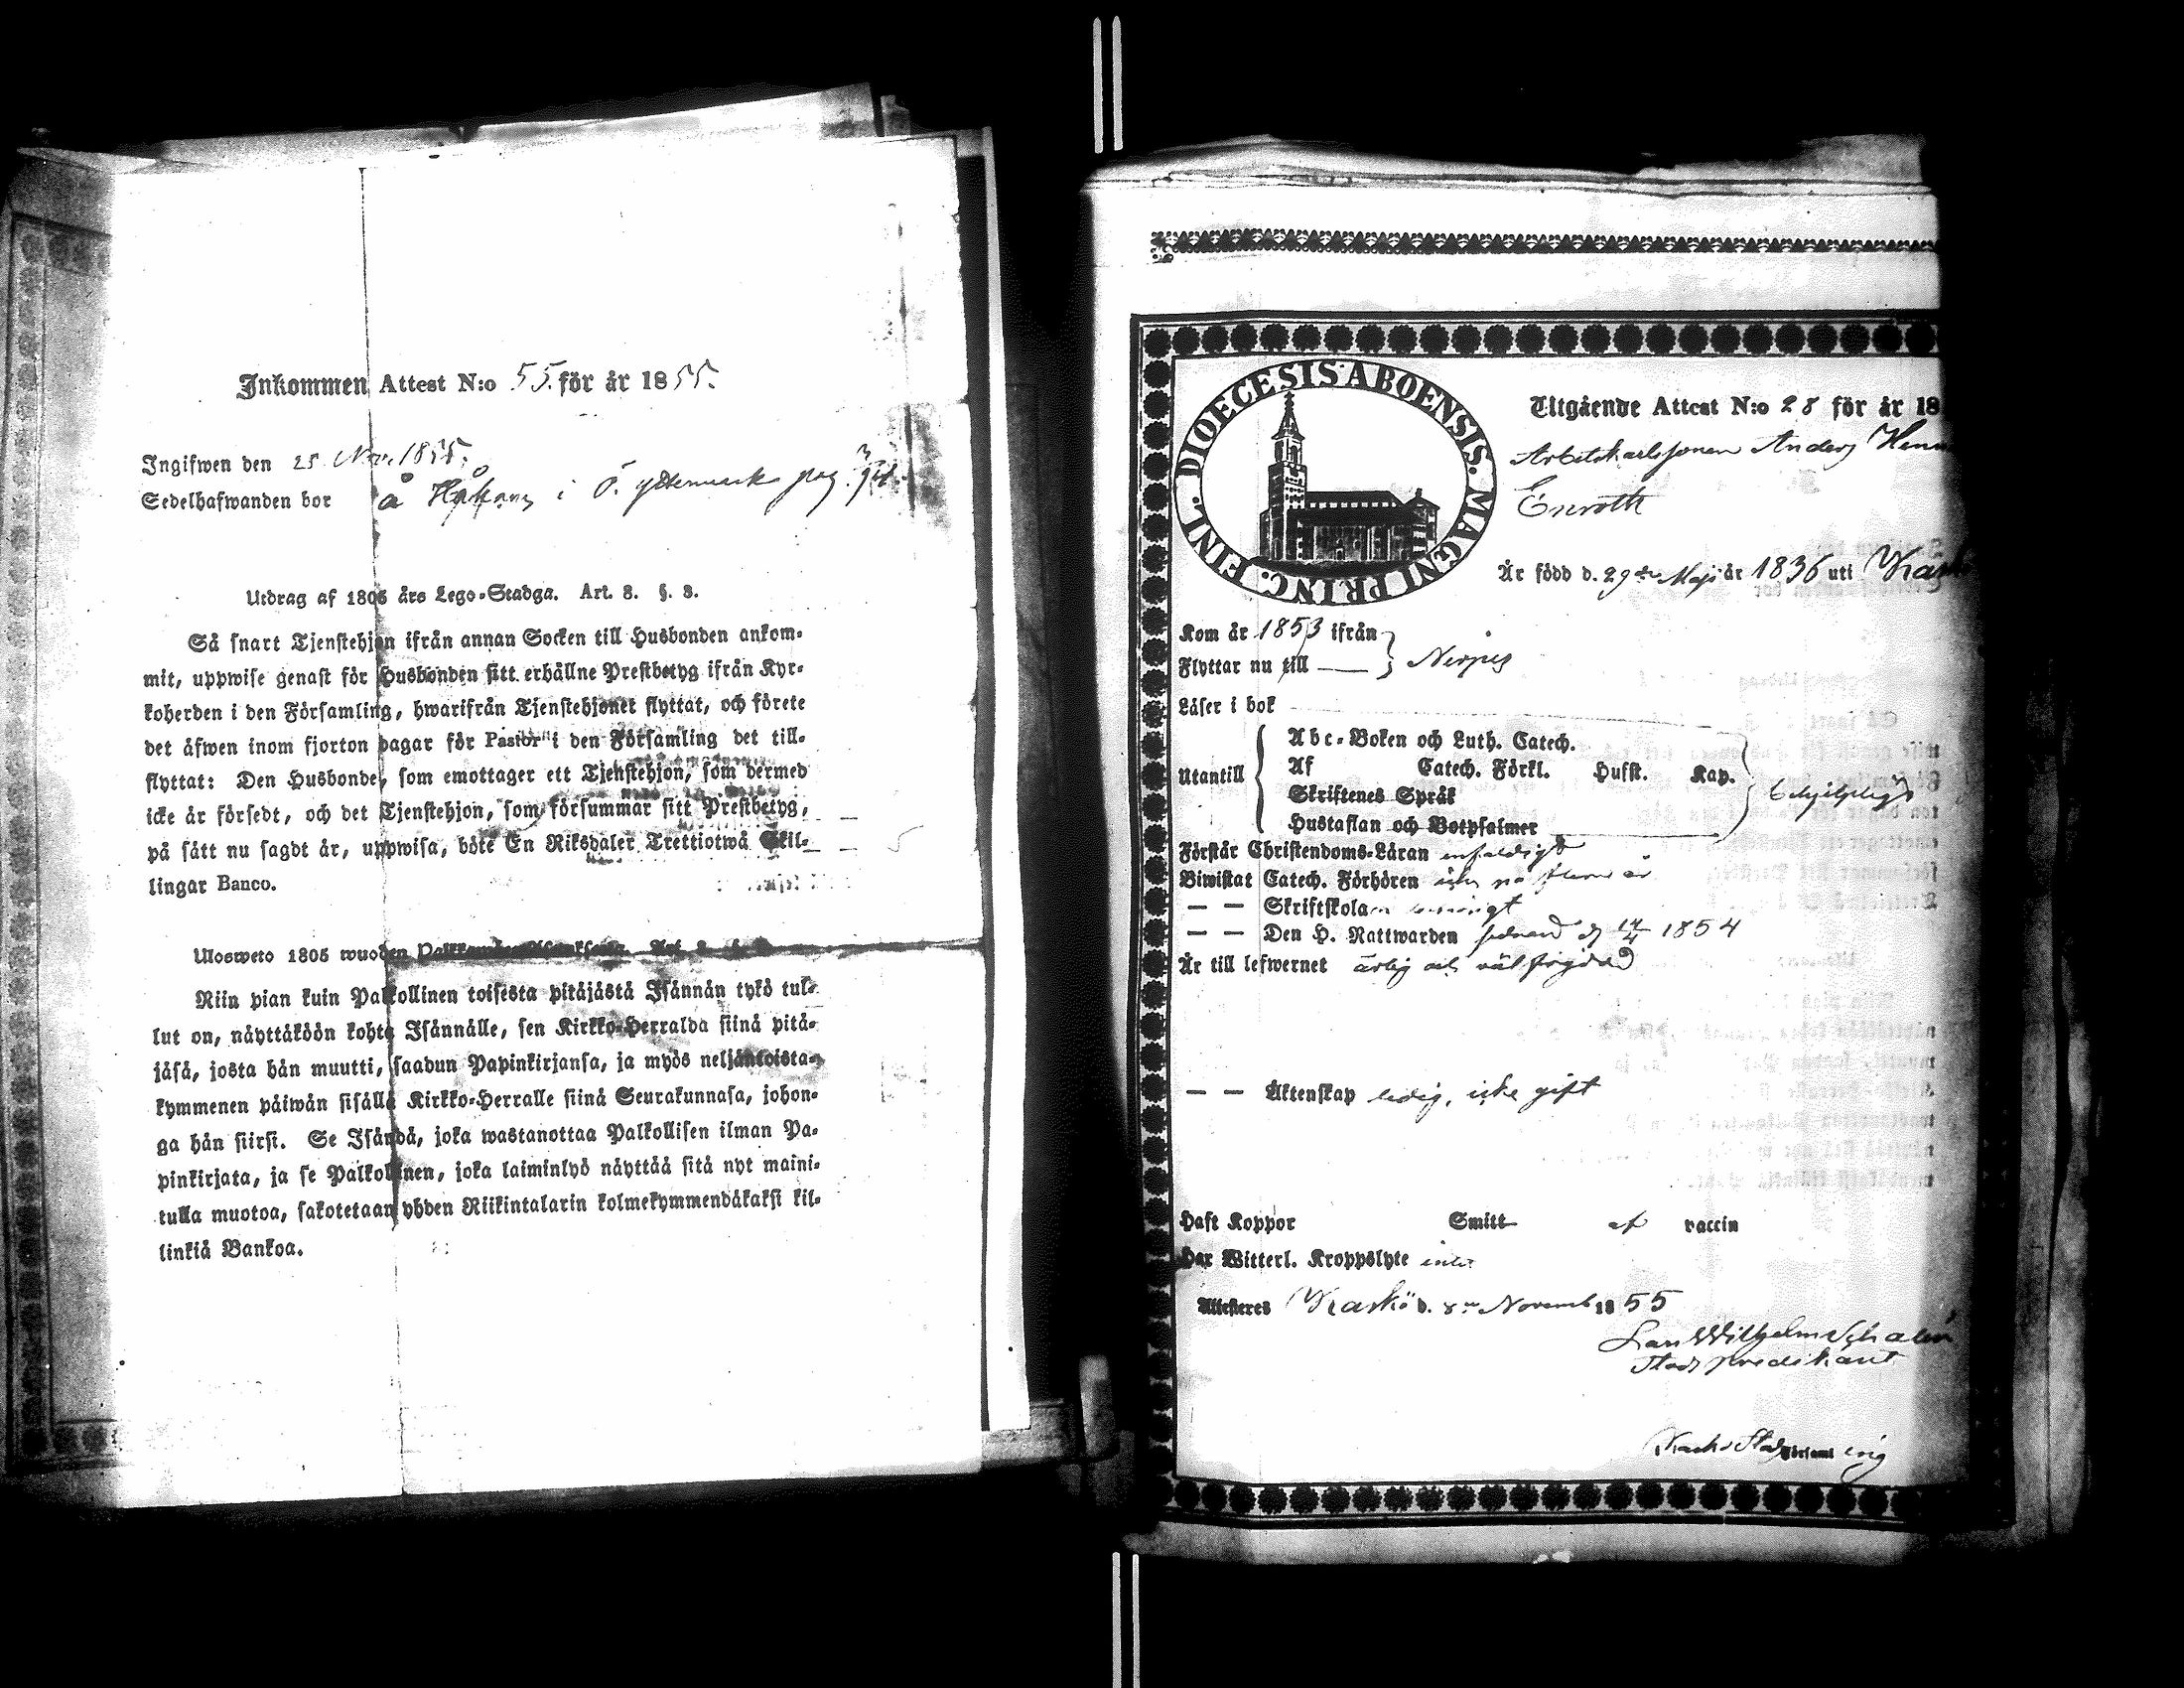 Inkommen Attest N:o 55. för år 1855.
Ingifwen den 25 Nov. 1855.
Sedelhafwanden bor å Håkans i Ö. Yttermark pag.
Utdrag af 1805 års Lego-Stadga. Art. 8. §. 3.
Så snart Tjenstehjon ifrån annan Socken till Husbonden ankom-
mit, uppwise genast för Husbonden sitt erhållne Prestbetyg ifrån Kyr-
koherden i den Församling, hwarifrån Tjenstehjonet flyttat, och förete
det äfwen inom fjorton dagar för Pastor i den Församling det till-
flyttat: Den Husbonde, som emottager ett Tjenstehjon, som dermed
icke är försedt, och det Tjenstehjon, som försummar sitt Prestbetyg,
på sätt nu sagdt är, uppwisa, böte En Riksdaler Trettiotwå Skil-
lingar Banco.
Ulosweto 1805 wuoden
Niin pian kuin Palkollinen toisesta pitäjästä Isännän tykö tul-
lut on, näyttäköön kohta Isännälle, sen Kirkko-Herralda siinä pitä-
jäsä, josta hän muutti, saadun Papinkirjansa, ja myös neljäntoista-
kymmenen päiwän sisällä Kirkko-Herralle siinä Seurakunnasa, johon-
ga hän siirsi. Se Isändä, joka wastanottaa Palkollisen ilman Pa-
pinkirjata, ja se Palkollinen, joka laiminlyö näyttää sitä nyt maini-
tulla muotoa, sakotetaan yhden Riikintalarin kolmekymmendäkaksi kil-
linkiä Bankoa.
DIOECESIS ABOENSIS. MAGNI PRINC. FINL.
Utgående Attest N:o 28 för år 18
Arbetskarlssonen Anders Hen
Enroth
Är född d. 29de Maji år 1836 uti Kask
Kom år 1853 ifrån
Flyttar nu till — } Nerpes
Läser i bok
Abc-Boken och Luth. Catech.
Af Catech. Förkl. Husst. Kap.
Utantill
Skriftenes Språk
Hustaflan och Botpsalmer
Förstår Christendoms-Läran enfaldigt
Biwistat Catech. Förhören icke på flere år
— — Skriftskolan
— — Den H. Nattwarden sednast d 14/4 1854
Är till lefwernet ärlig och väl frejdad
— — Äktenskap ledig, icke gift
Haft Koppor Smitt af vaccin
Har Witterl. Kroppslyte intet
Attesteres Kaskö d. 8 Novemb 1855
Lars Wilhelm Schalin
Stads predikant
Kaskö Stads Församl ing